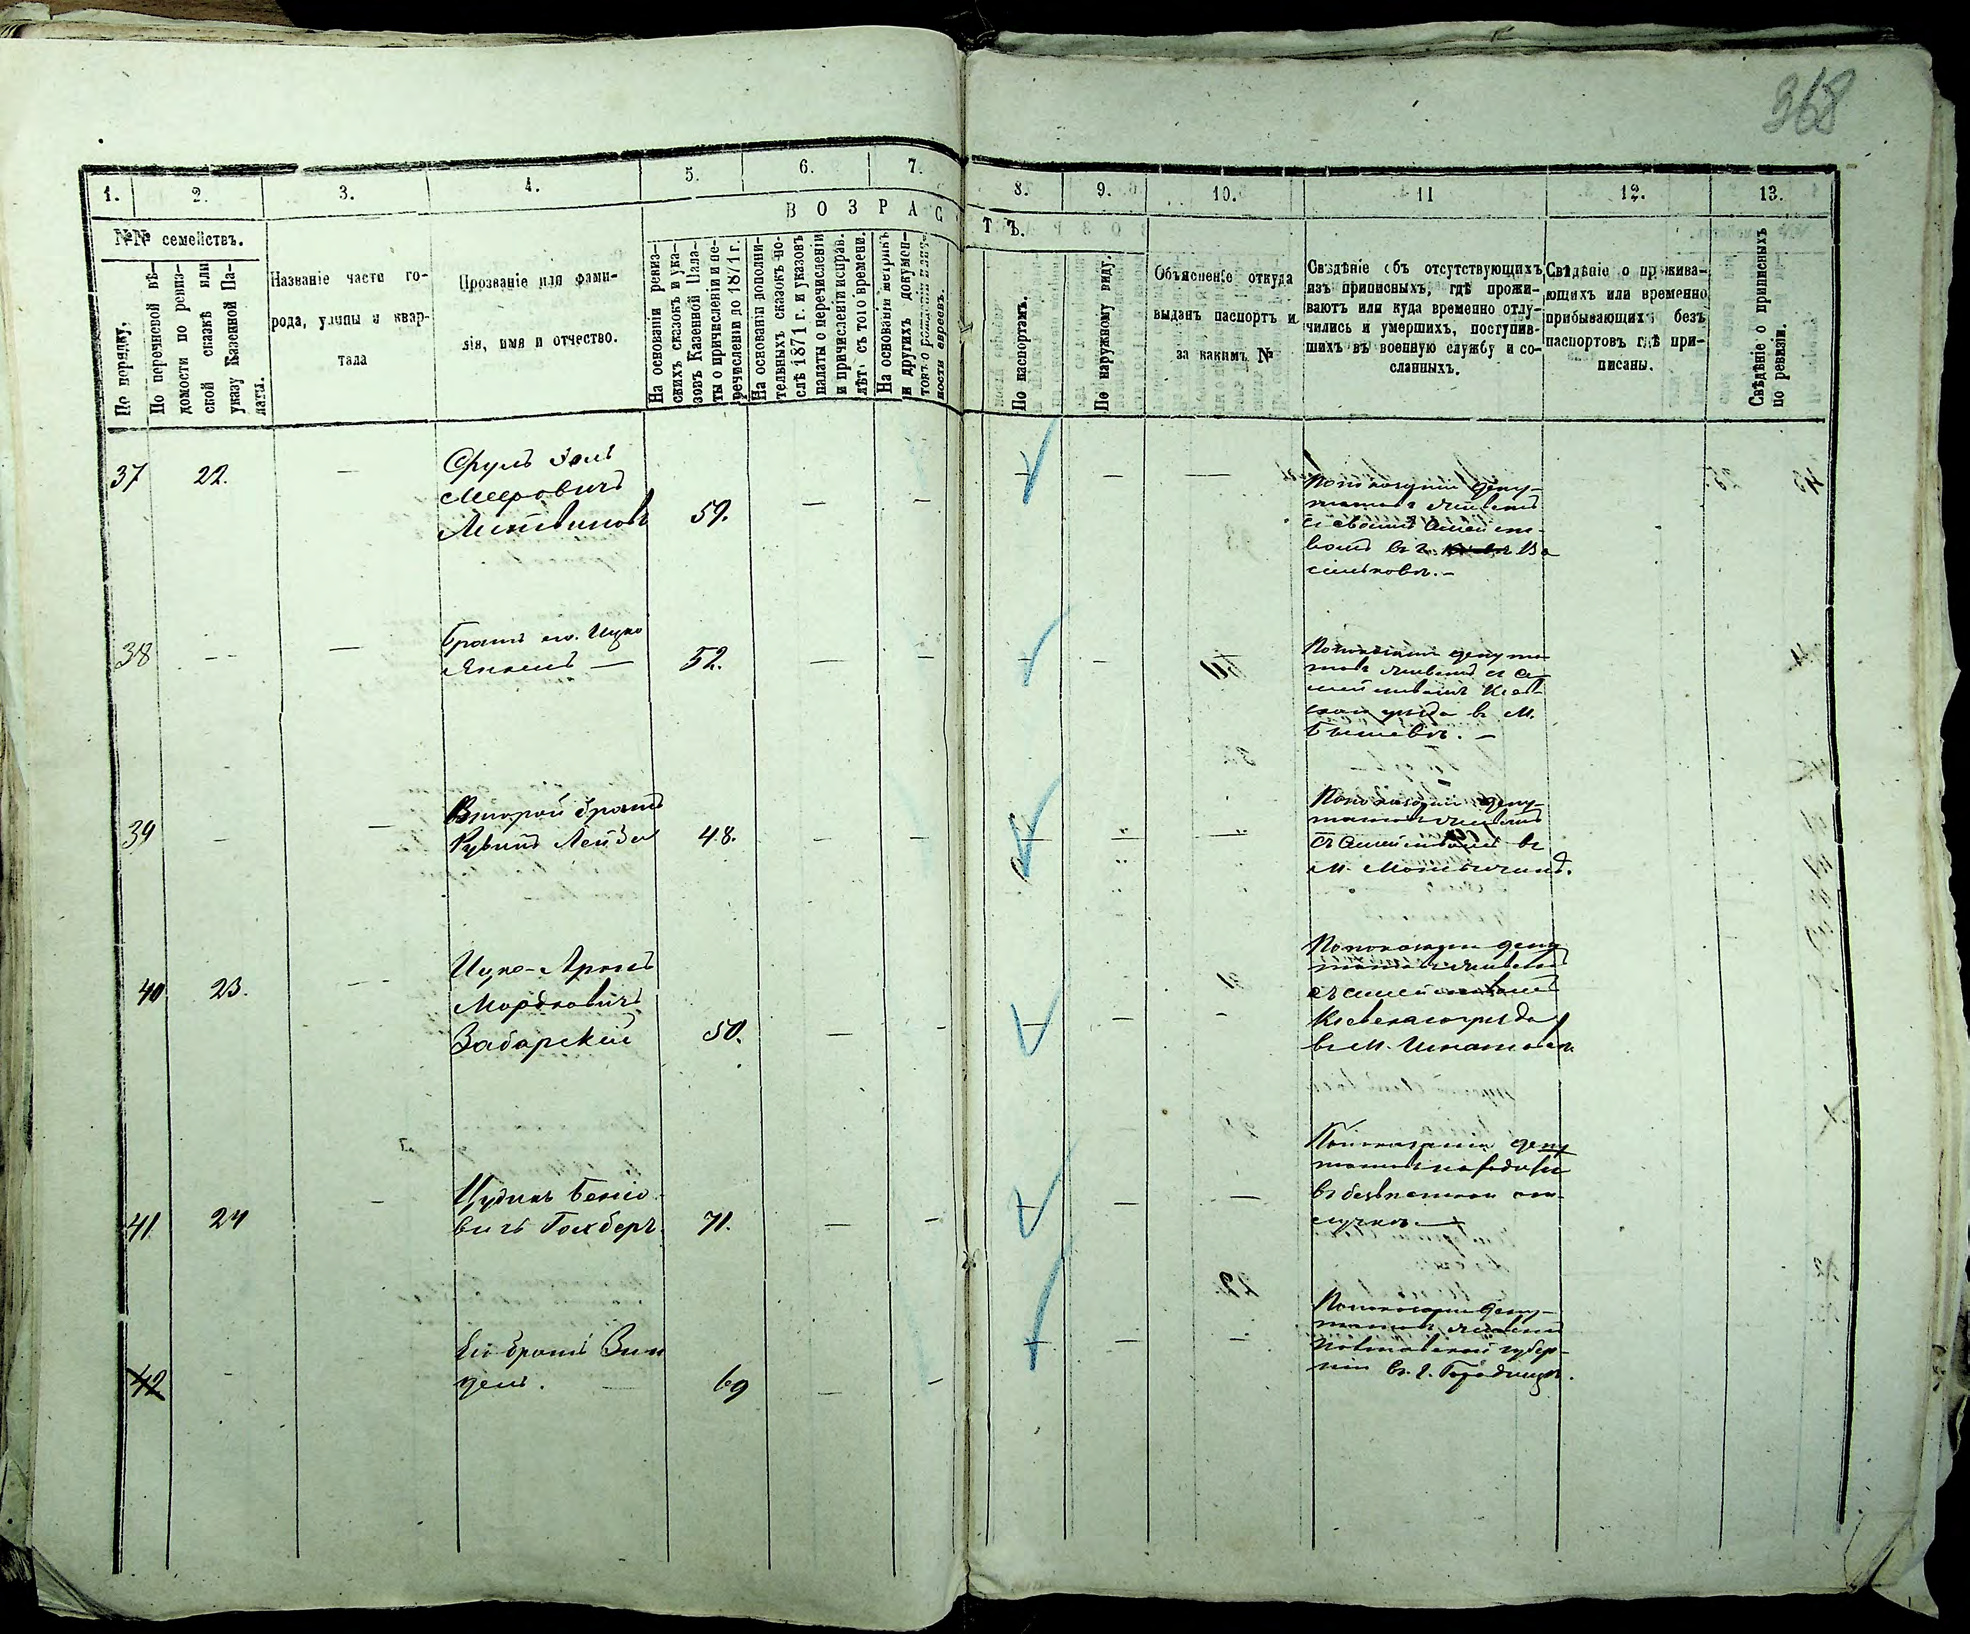 368
1.
2.
3.
4.
5.
6.
7.
8.
9.
10.
11
12.
13.
ВОЗРАСТЪ.
№№ семействъ.
По порядку.
По перечневой вѣ-
домости по ревиз-
ской сказкѣ или
указу Казенной Па-
латы.
Названіе части го-
рода, улицы и квар-
тала
Прозваніе или фами-
лія, имя и отчество.
На основаніи ревиз-
скихъ сказокъ и ука-
зовъ Казенной Пала-
ты о причисленіи и пе-
речисленіи до 1871 г.
На основаніи дополни-
тельныхъ сказокъ по-
слѣ 1871 г. и указовъ
палаты о перечисленіи
и причисленіи исправ.
лѣтъ съ того времени.
На основаніи метрикъ
и другихъ докумен-
товъ о рожденіи
ности евреевъ.
По паспортамъ.
По наружному виду.
Объясненіе откуда
выданъ паспортъ и
за какимъ №
Свѣдѣніе объ отсутствующихъ
изъ приписныхъ, гдѣ прожи-
ваютъ или куда временно отлу-
чились и умершихъ, поступив-
шихъ въ военную службу и со-
сланныхъ.
Свѣдѣніе о прожива-
ющихъ или временно
прибывающихъ безъ
паспортовъ гдѣ при-
писаны.
Свѣдѣніе о приписныхъ
по ревизіи.
37 22. — Срулъ
Мееровичъ
Литвиновъ 59. — —
По показанію депу-
татовъ живетъ
съ своимъ семейст-
вомъ въ г. Ва
сильковѣ. —
38 — — Братъ его. Ицко
Янкель — 52. — —
По показанію депута
товъ живетъ съ се
мействомъ Кіев-
скаго уѣзда въ м.
Бышевѣ. —
39 — — Второй братъ
Рувинъ Лейза 48. — —
По показанію депу-
татовъ живетъ
съ семействомъ въ
м. Мотыжинѣ.
40 23. — Ицко-Аронъ
Мордковичъ
Заборскій 50. — —
По показанію депу
татовъ живетъ
съ семействомъ
Кіевскаго уѣзда
въ м. Игнатовкѣ
41 24 — Бенію-
вичъ Гохберъ. 71. — —
По показанію депу
татовъ находит
въ безвѣстной от-
лучкѣ. —
42 — Его братъ Зин
дель. — 69 — —
По показанію депу-
татовъ живетъ
Полтавской губер-
ніи въ г. Городищѣ.